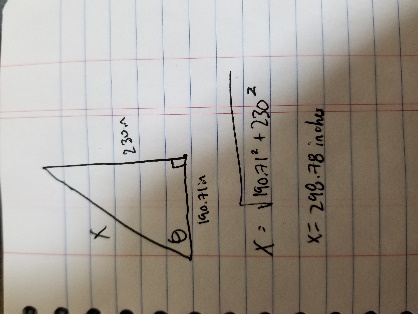 230in
X
θ
190.71in
X = √190.71² + 230²
X = 298.78 inches